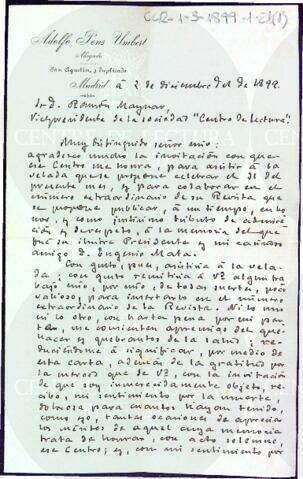 CCR-1-3-1899-1-21(1)
Adolfo Pons Umbert
Abogado
San Agustin, 7 duplicado
Madrid á 2 de diciembre de 1899.
Sr. D. Ramón Maynar,
Vicepresidente de la sociedad "Centro de lectura".
Muy distinguido señor mío:
agradezco mucho la invitación con que
ese Centro me honra, para asistir á la
velada que se propone celebrar el 31 del
presente mes, y para colaborar en el
número extraordinario de su Revista que
se propone publicar, á un tiempo, en ho-
nor, y como justísimo tributo de admira-
ción y de respeto, á la memoria del que
fué su ilustre Presidente y mi cariñoso
amigo D. Eugenio Mata.
Con gusto, pues, asistiría á la vela-
da; con gusto remitiría á Vd. algún tra-
bajo mío, por mío, de todas suertes, poco
valioso, para insertarlo en el número
extraordinario de la Revista. Ni lo uno
ni lo otro, con harta pena por mi par-
te, me consienten apremios del que-
hacer y quebrantos de la salud; re-
duciéndome á significar, por medio de
esta carta, además de la gratitud por
la merced que de Vd., con la invitación
de que soy inmerecidamente objeto, re-
cibo, mi sentimiento por la muerte,
dolorosa para cuantos hayan tenido,
como yo, tantas ocasiones de apreciar
los méritos de aquel cuya memoria
trata de honrar, con acto solemne,
ese Centro; y, con mi sentimiento por